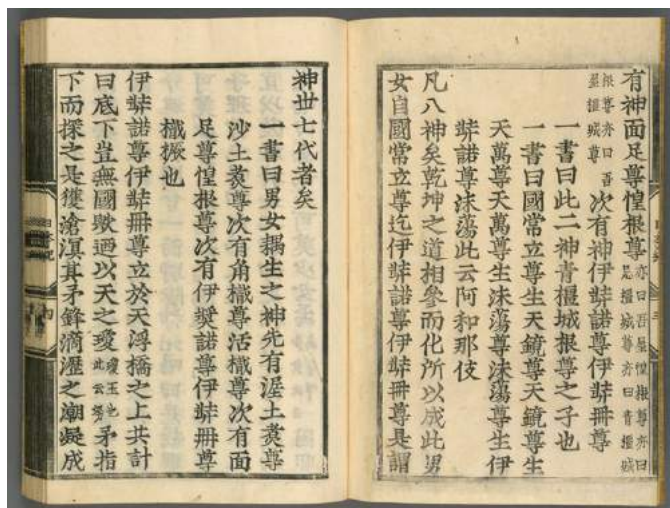 有神面足尊惶根尊亦曰吾屋惶根尊亦曰
忌橿城尊亦曰青橿城
根尊亦曰吾
屋橿城尊次有神伊弉諾尊伊弉冊尊
一書曰此二神青橿城根尊之子也
一書曰國常立尊生天鏡尊天鏡尊生
天萬尊天萬尊生沫蕩尊沫蕩尊生伊
弉諾尊沫蕩此云阿和那伎
凡八神矣乾坤之道相參而化所以成此男
女自國常立尊迄伊弉諾尊伊弉冊尊是謂
神世七代者矣
一書曰男女耦生之神先有埿土煑尊
沙土煑尊次有角樴尊活樴尊次有面
足尊惶根尊次有伊弉諾尊伊弉冊尊
樴橛也
伊弉諾尊伊弉冊尊立於天浮橋之上共計
曰底下豈無國歟廼以天之瓊瓊玉也
此云努矛指
下而探之是獲滄溟其矛鋒滴瀝之潮凝成